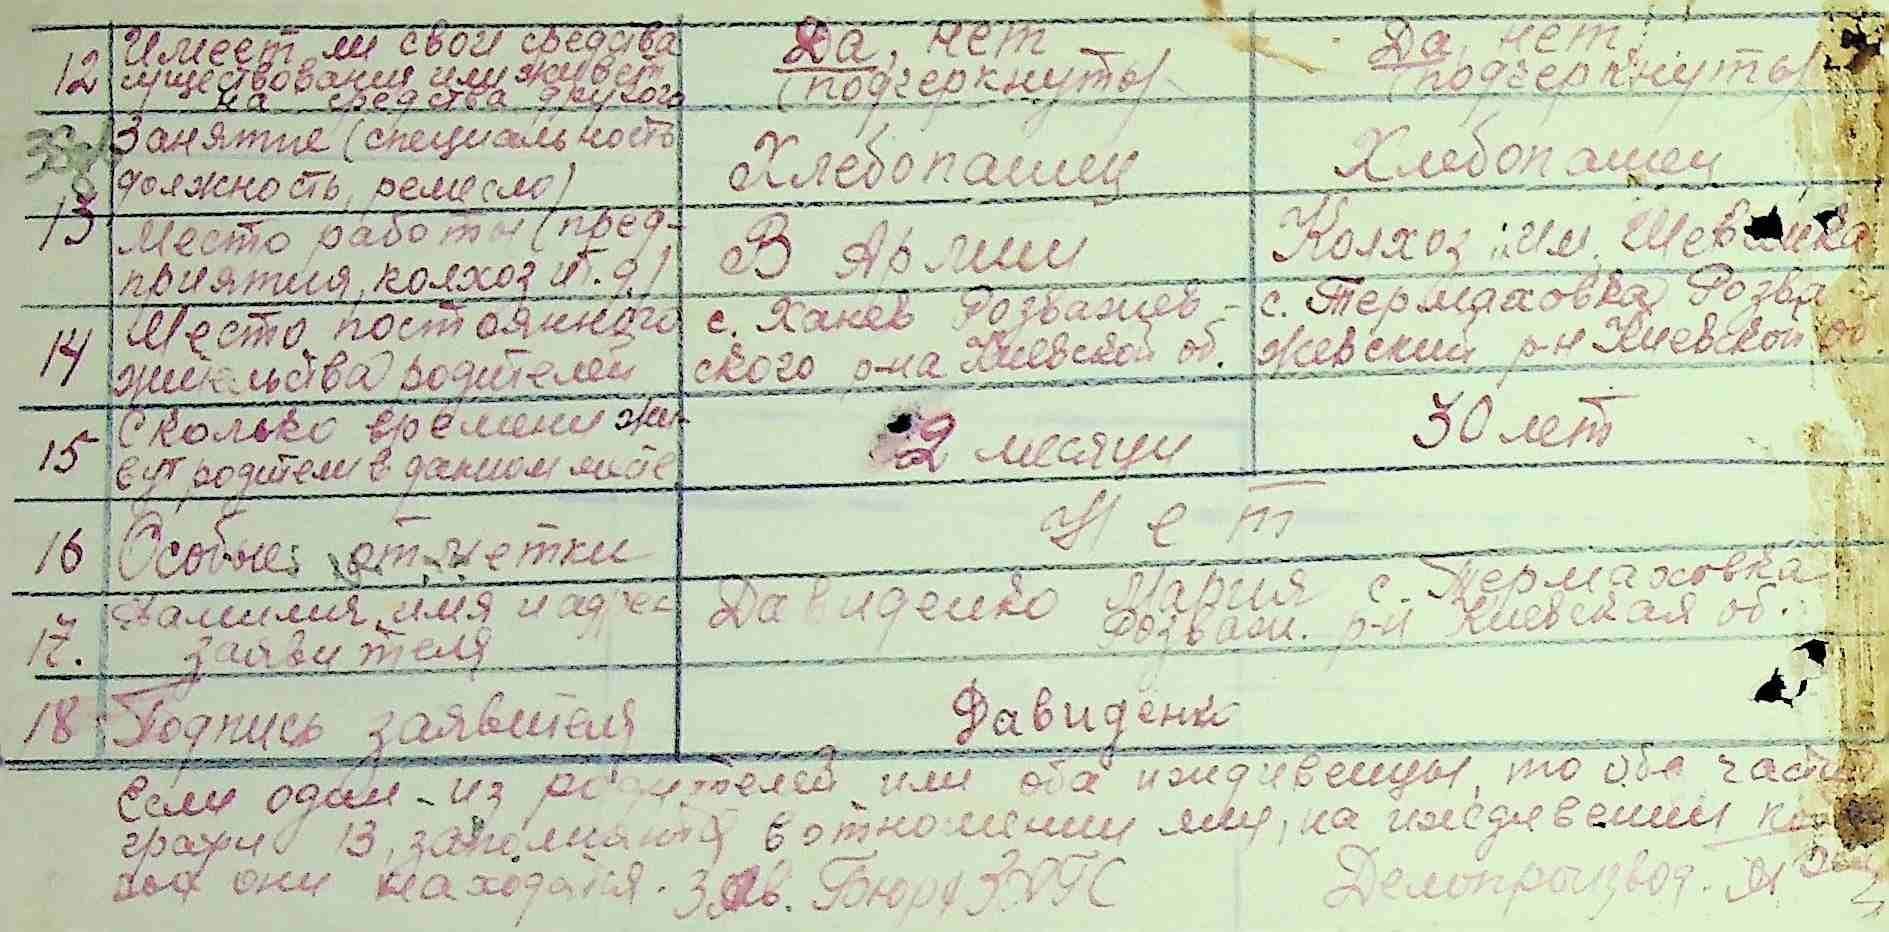 12 Имеет ли свои средства
существования или живет
на средства другого
Да, нет
(подчеркнуть)
Да, нет
(подчеркнуть)
13 Занятие (специальность
должность, ремесло)
Хлебопашец
Хлебопашец
Место работы (пред-
приятия, колхоз и т.д.)
В Армии
Колхоз им. Шевченка
14 Место постоянного
жительства родителей
с. Ханев Розважев-
ского р-на Киевской об.
с. Термаховка Розва-
жевский р-н Киевской об.
15 Сколько времени жи-
вут родители в данном месте
2 месяци
30 лет
16 Особые отметки
Нет
17. Фамилия, имя и адрес
заявителя
Давиденко Мария с. Термаховка
Розваж. р-н Киевская об.
18 Подпись заявителя
Давиденко
Если один из родителей или оба иждивенцы, то обе части
графи 13, заполняются в отношении лиц, на иждивении ко-
они находятся. Зав. Бюро ЗАГС
Делопроизвод.